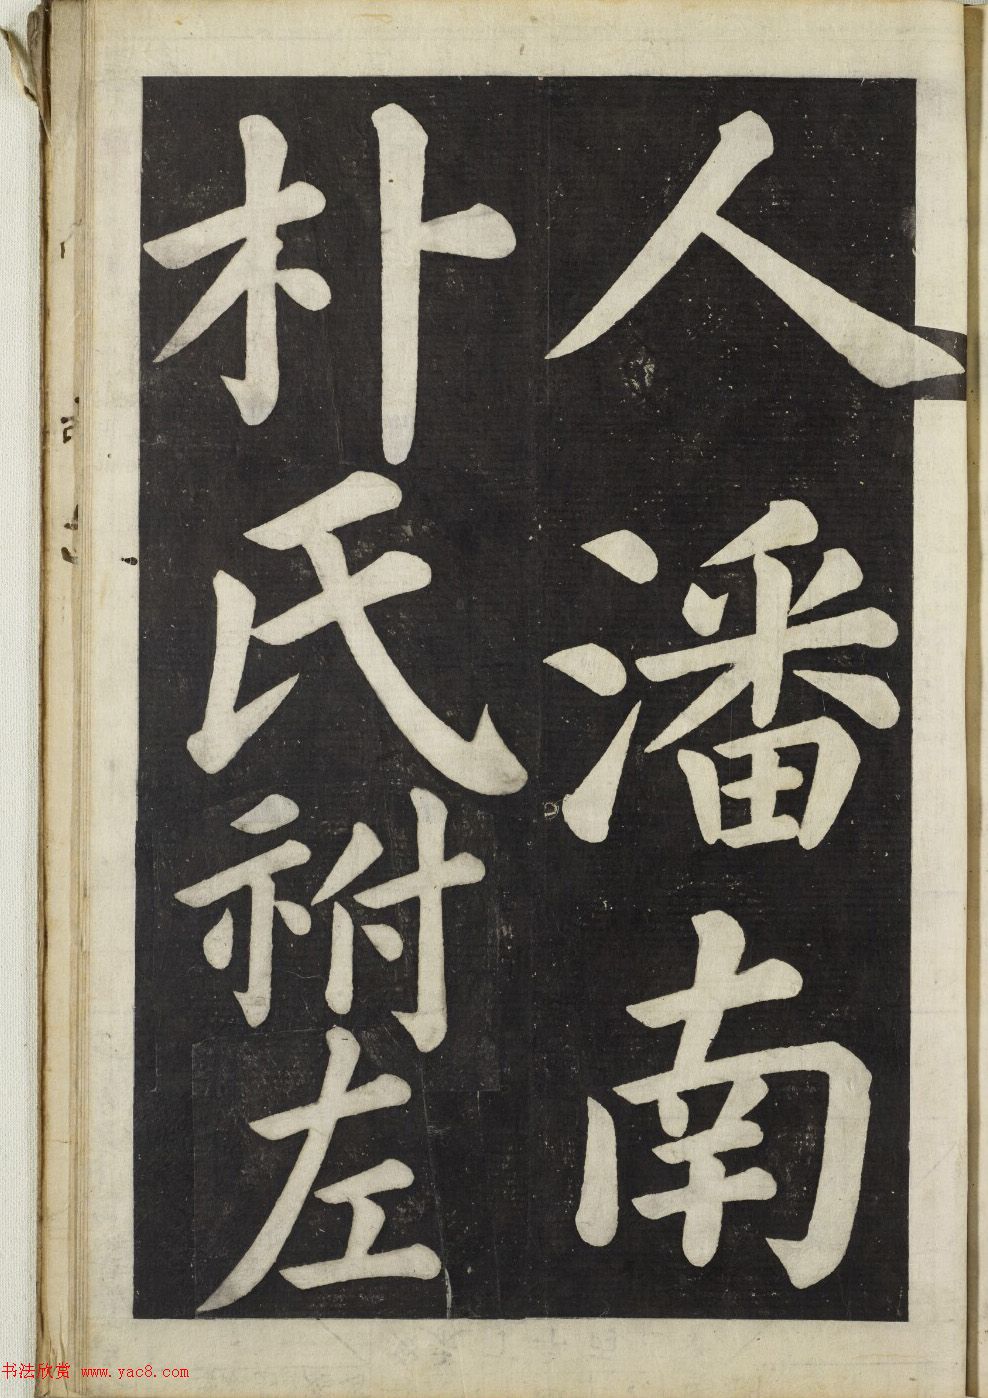 人潘南
朴氏祔左
书法欣赏 www.yac8.com